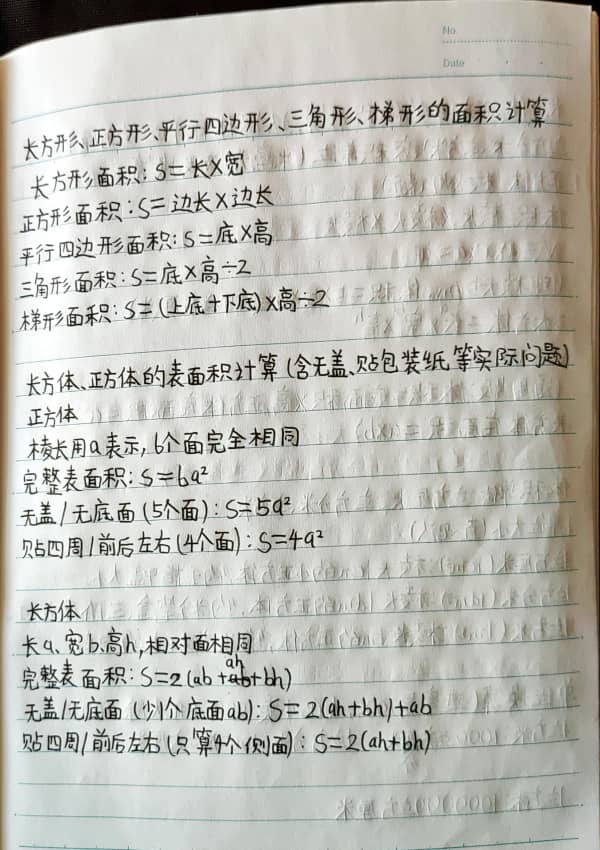 No.
Date
长方形、正方形、平行四边形、三角形、梯形的面积计算
长方形面积：S=长×宽
正方形面积：S=边长×边长
平行四边形面积：S=底×高
三角形面积：S=底×高÷2
梯形面积：S=(上底+下底)×高÷2
长方体、正方体的表面积计算(含无盖、贴包装纸等实际问题)
正方体
棱长用a表示，6个面完全相同
完整表面积：S=6a²
无盖/无底面(5个面)：S=5a²
贴四周/前后左右(4个面)：S=4a²
长方体
长a、宽b、高h，相对面相同
完整表面积：S=2(ab+ah+bh)
无盖/无底面(少1个底面ab)：S=2(ah+bh)+ab
贴四周/前后左右(只算4个侧面)：S=2(ah+bh)